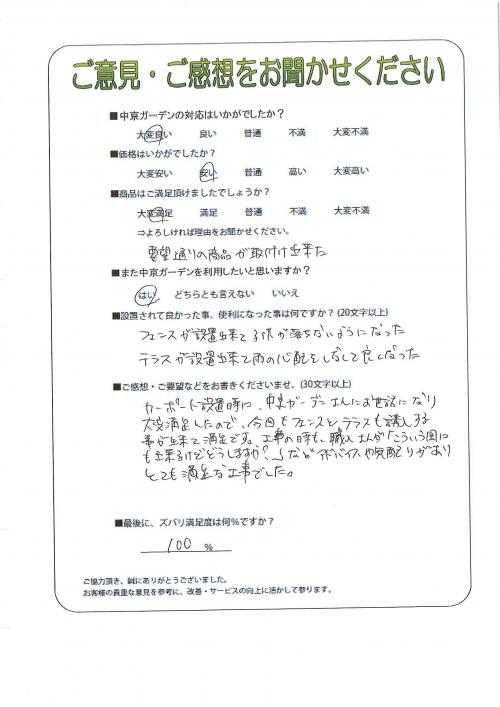 ご意見・ご感想をお聞かせください
■中京ガーデンの対応はいかがでしたか？
大変良い 良い 普通 不満 大変不満
■価格はいかがでしたか？
大変安い 安い 普通 高い 大変高い
■商品はご満足頂けましたでしょうか？
大変満足 満足 普通 不満 大変不満
⇒よろしければ理由をお聞かせください。
要望通りの商品が取付け出来た
■また中京ガーデンを利用したいと思いますか？
はい どちらとも言えない いいえ
■設置されて良かった事、便利になった事は何ですか？(20文字以上)
フェンスが設置出来て が落ちないようになった
テラスが設置出来て雨の心配をしなくて良くなった
■ご感想・ご要望などをお書きくださいませ。(30文字以上)
カーポート設置時に、中京ガーデンさんにお世話になり
大変満足したので、今回もフェンスとテラスも する
事が出来て満足です。工事の時も、職人さんが「こういう風に
も出来るけどどうしますか？」などアドバイスや気配りがあり
とても満足な工事でした。
■最後に、ズバリ満足度は何％ですか？
100 ％
ご協力頂き、誠にありがとうございました。
お客様の貴重な意見を参考に、改善・サービスの向上に活かして参ります。